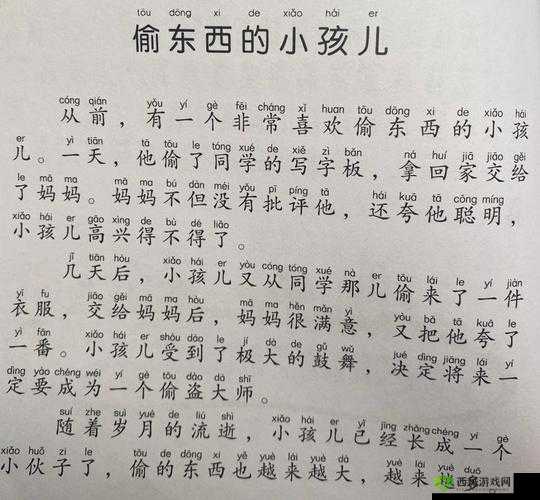 tōu dōng xi de xiǎo hái er
偷东西的小孩儿
cóng qián yǒu yí gè fēi cháng xǐ huan tōu dōng xi de xiǎo hái
从前，有一个非常喜欢偷东西的小孩
er yì tiān tā tōu le tóng xué de xiě zì bǎn ná huí jiā jiāo gěi
儿。一天，他偷了同学的写字板，拿回家交给
le mā ma mā ma bú dàn méi yǒu pī píng tā hái kuā tā cōng míng
了妈妈。妈妈不但没有批评他，还夸他聪明，
xiǎo hái er gāo xìng de bù dé liǎo
小孩儿高兴得不得了。
jǐ tiān hòu xiǎo hái er yòu cóng tóng xué nà er tōu lái le yí jiàn
几天后，小孩儿又从同学那儿偷来了一件
yī fu jiāo gěi mā ma hòu mā ma hěn mǎn yì yòu bǎ tā kuā le
衣服，交给妈妈后，妈妈很满意，又把他夸了
yì fān xiǎo hái er shòu dào le jí dà de gǔ wǔ jué dìng jiāng lái yí
一番。小孩儿受到了极大的鼓舞，决定将来一
dìng yào chéng wéi yí gè tōu dào dà shī
定要成为一个偷盗大师。
suí zhe suì yuè de liú shì xiǎo hái er yǐ jīng zhǎng chéng yí gè
随着岁月的流逝，小孩儿已经长成一个
xiǎo huǒ zi le tōu de dōng xi yě yuè lái yuè dà yuè lái yuè
小伙子了，偷的东西也越来越大，越来越
西西游戏网